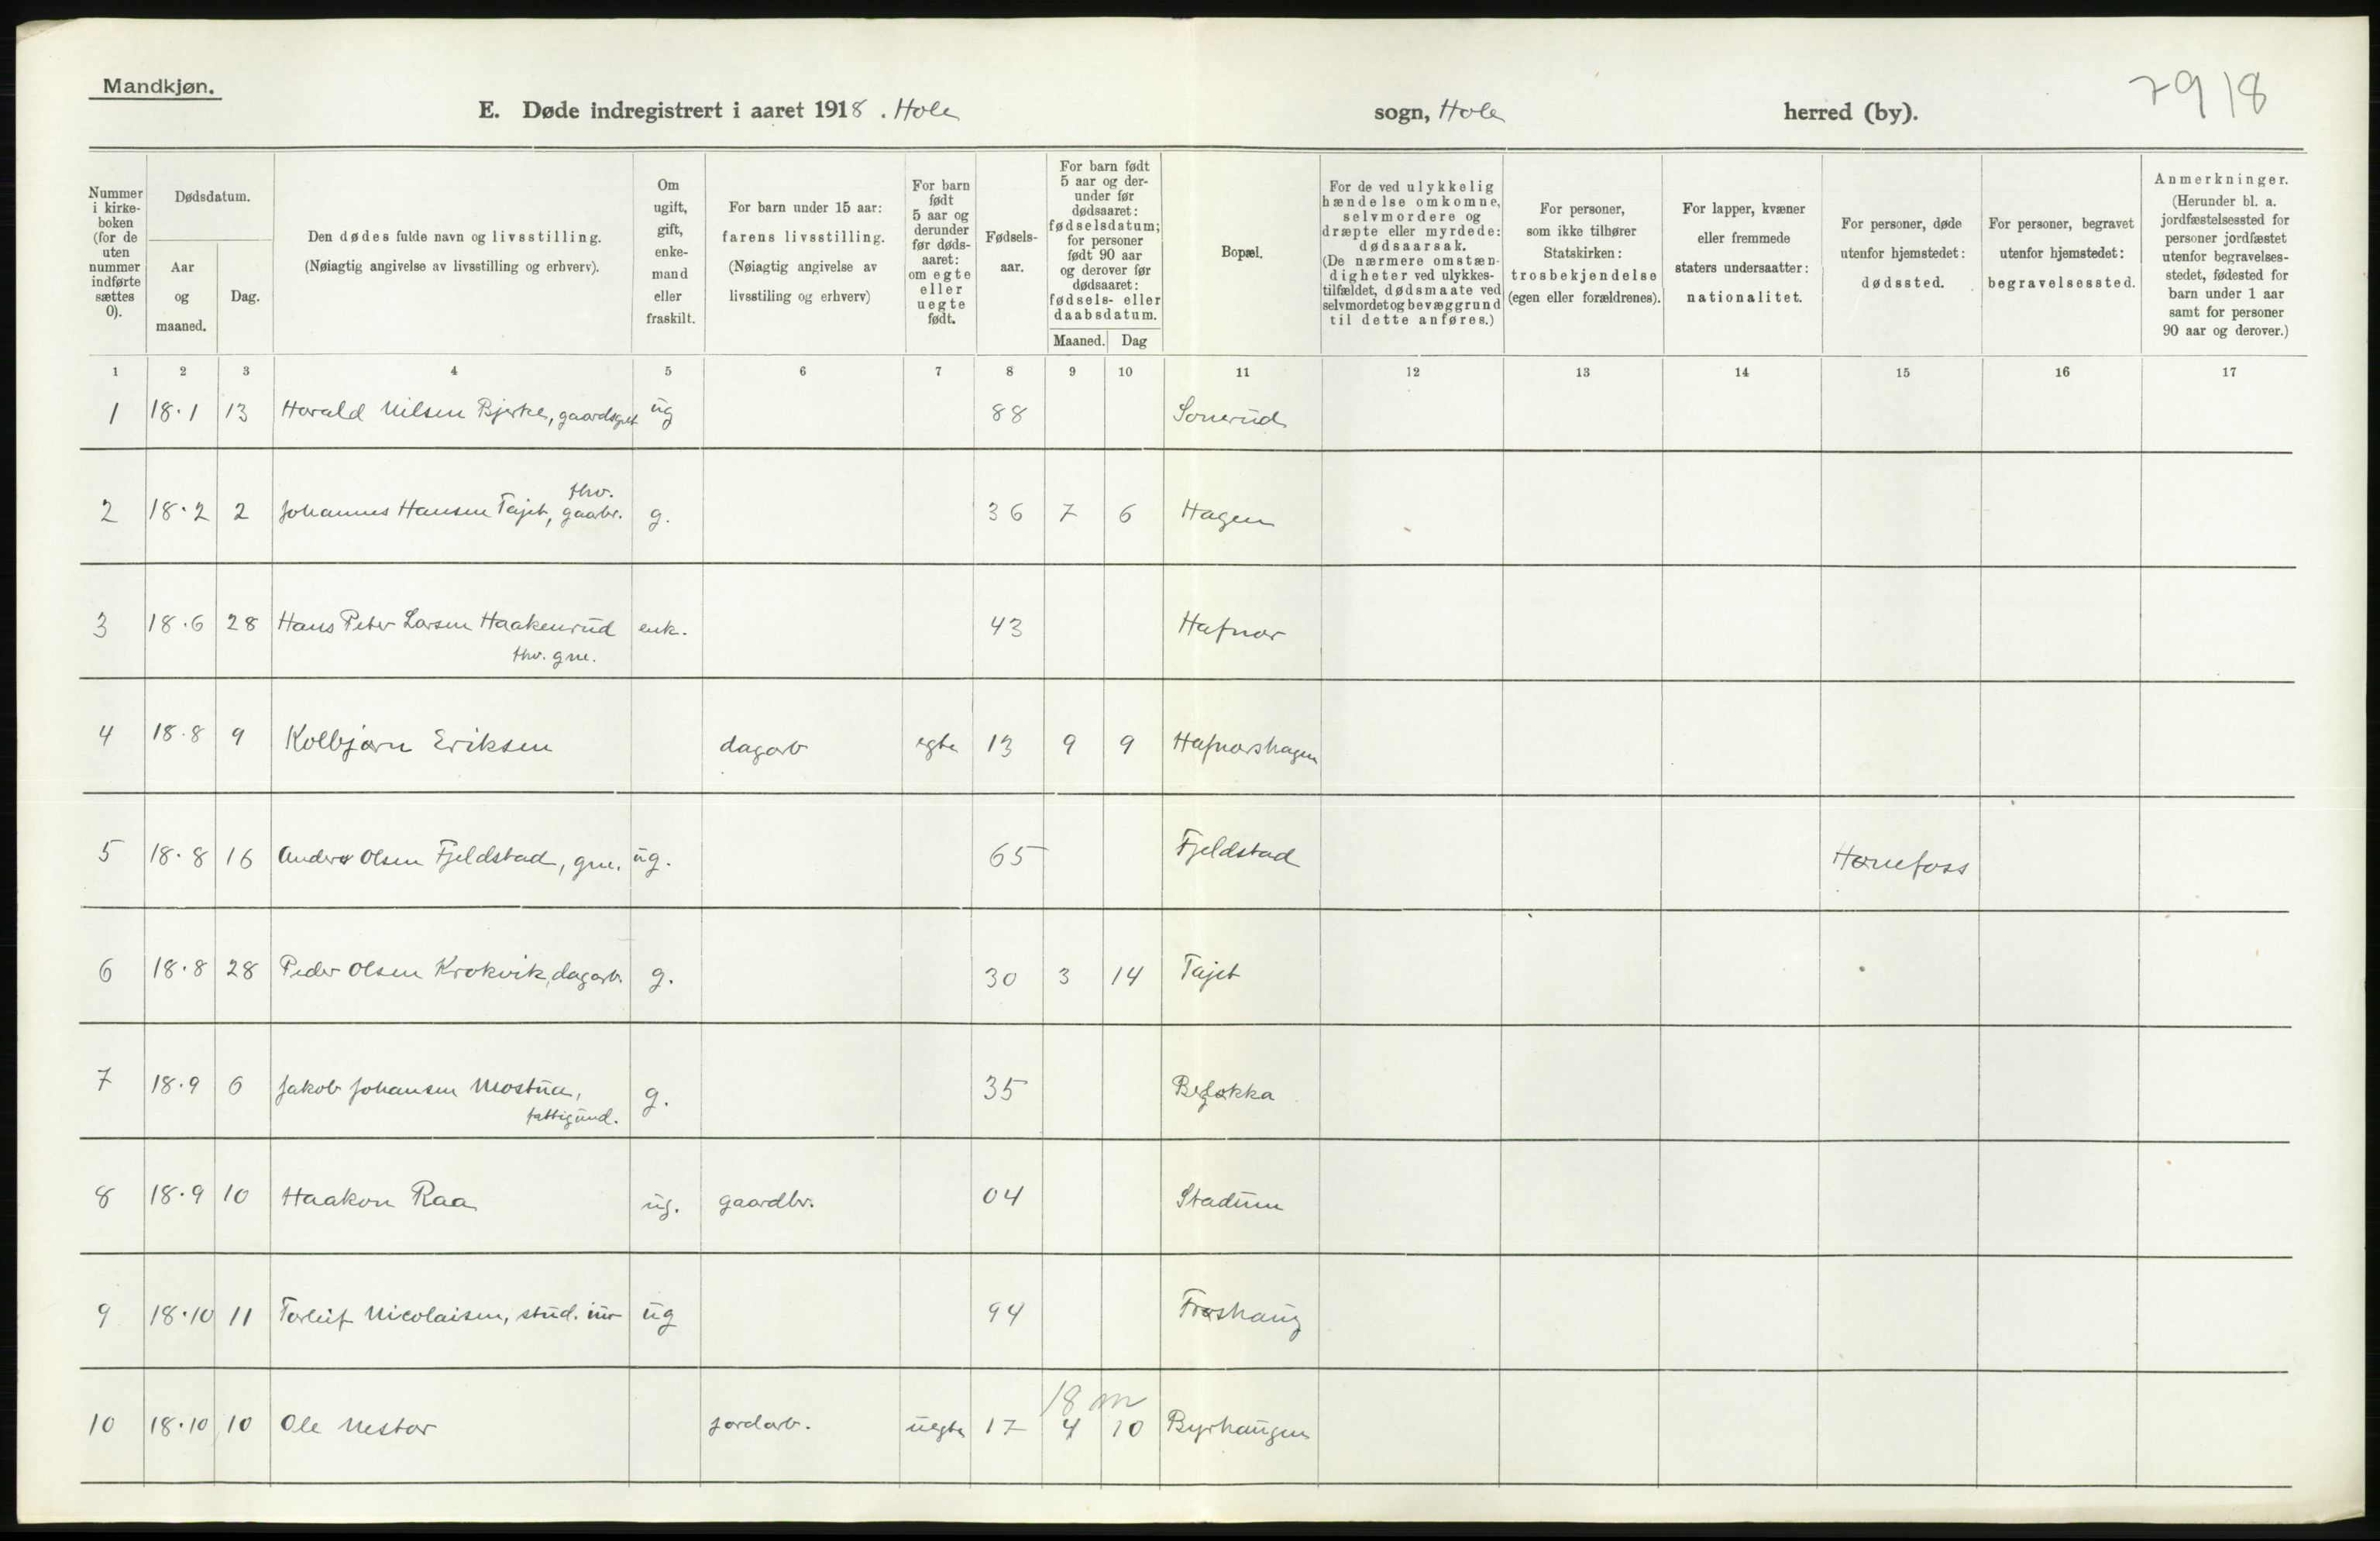 Mandkjøn.
7918
E. Døde indregistrert i aaret 1918. Hole sogn, Hole herred (by).
Nummer i kirke-boken (for de uten nummer indførte sættes 0).
Dødsdatum.
Aar og maaned.
Dag.
Den dødes fulde navn og livsstilling.
(Nøiagtig angivelse av livsstilling og erhverv).
Om ugift, gift, enke-mand eller fraskilt.
For barn under 15 aar: farens livsstilling.
(Nøiagtig angivelse av livsstiling og erhverv)
For barn født 5 aar og derunder før døds-aaret: om egte eller uegte født.
Fødsels-aar.
For barn født 5 aar og der-under før dødsaaret: fødselsdatum; for personer født 90 aar og derover før dødsaaret: fødsels- eller daabsdatum.
Maaned. Dag
Bopæl.
For de ved ulykkelig hændelse omkomne, selvmordere og dræpte eller myrdede: dødsaarsak.
(De nærmere omstæn-digheter ved ulykkes-tilfældet, dødsmaate ved selvmordet og bevæggrund til dette anføres.)
For personer, som ikke tilhører Statskirken: trosbekjendelse (egen eller forældrenes).
For lapper, kvæner eller fremmede staters undersaatter: nationalitet.
For personer, døde utenfor hjemstedet: dødssted.
For personer, begravet utenfor hjemstedet: begravelsessted.
Anmerkninger.
(Herunder bl. a. jordfæstelsessted for personer jordfæstet utenfor begravelses-stedet, fødested for barn under 1 aar samt for personer 90 aar og derover.)
1 2 3 4 5 6 7 8 9 10 11 12 13 14 15 16 17
1 18.1 13 Harald Nilsen Bjerke, ug 88 Sonerud
2 18.2 2 Johannes Hansen Tajet, fhv. gaarbr. g. 36 7 6 Hagen
3 18.6 28 Hans Peter Larsen Haakenrud enk. 43 Hafnor
fhv. gne.
4 18.8 9 Kolbjørn Eriksen dagarb egte 13 9 9 Hafnorshagen
5 18.8 16 Anders Olsen Fjeldstad, gne. ug. 65 Fjeldstad Hønefoss
6 18.8 28 Peder Olsen Krokvik, dagarb. g. 30 3 14 Tajet
7 18.9 6 Jakob Johansen Mostua, g. 35
fattigund.
8 18.9 10 Haakon Raa ug. gaardbr. 04 Stadum
9 18.10 11 Torleif Nicolaisen, stud. iur ug 94 Frøshaug
18 m
10 18.10 10 Ole Nestor jordarb. uegte 17 4 10 Byrhaugen